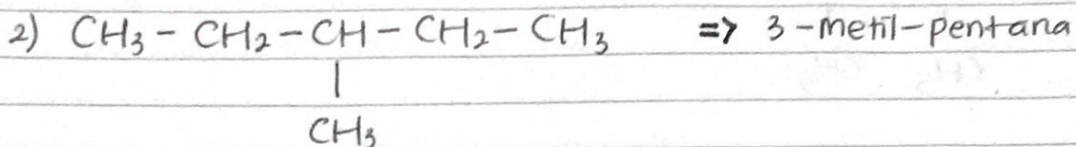 2) CH₃ - CH₂ - CH - CH₂ - CH₃ => 3-metil-pentana
|
CH₃